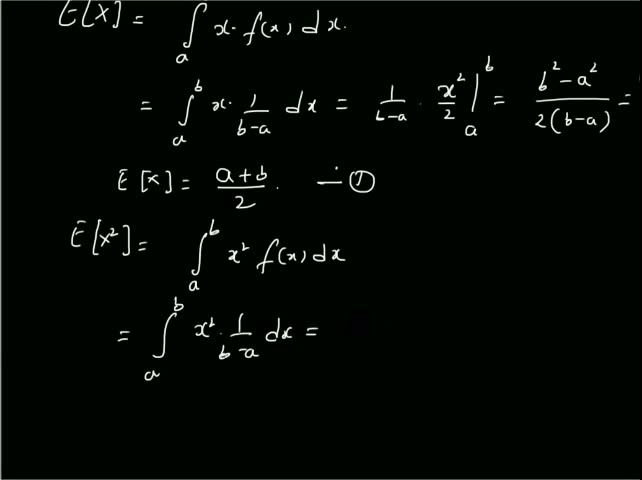 E[X] = ∫ₐ x. f(x) dx.
= ∫ₐᵇ x. 1/(b-a) dx = 1/(b-a) . x²/2 |ₐᵇ = (b²-a²)/(2(b-a)) =
E[X] = (a+b)/2. — ①
E[X²] = ∫ₐᵇ x² f(x) dx
= ∫ₐᵇ x². 1/(b-a) dx =